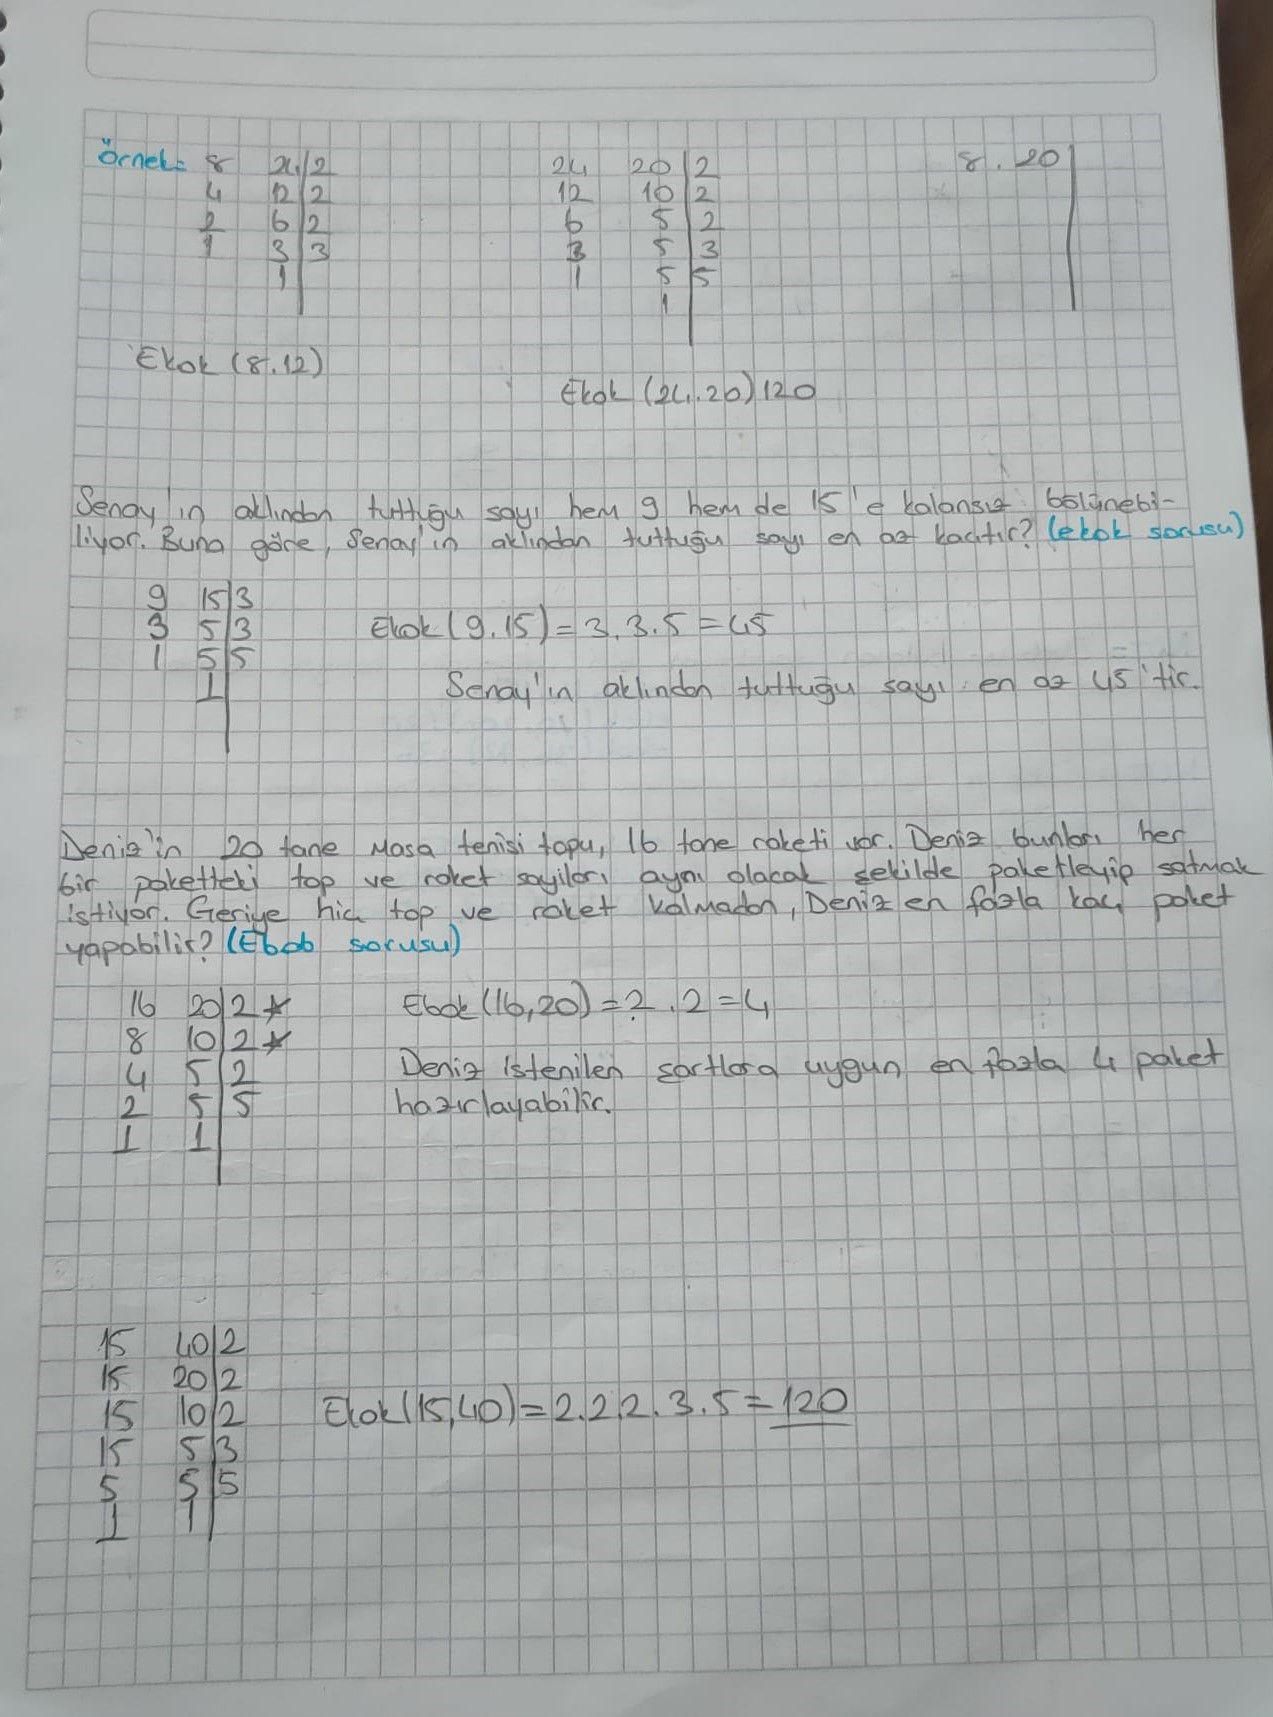 Örnek= 8 24 | 2
4 12 | 2
2 6 | 2
1 3 | 3
1
Ekok (8.12)
24 20 | 2
12 10 | 2
6 5 | 2
3 5 | 3
1 5 | 5
1
Ekok (24.20) 120
8 . 20
Senay'ın aklından tuttuğu sayı hem 9 hem de 15'e kalansız bölünebi-
liyor. Buna göre, Senay'ın aklından tuttuğu sayı en az kaçtır? (ekok sorusu)
9 15 | 3
3 5 | 3
1 5 | 5
1
Ekok (9.15) = 3.3.5 = 45
Senay'ın aklından tuttuğu sayı en az 45'tir.
Deniz'in 20 tane masa tenisi topu, 16 tane raketi var. Deniz bunları her
bir paketteki top ve raket sayıları aynı olacak şekilde paketleyip satmak
istiyor. Geriye hiç top ve raket kalmadan, Deniz en fazla kaç paket
yapabilir? (Ebob sorusu)
16 20 | 2 *
8 10 | 2 *
4 5 | 2
2 5 | 5
1 1
Ebok (16,20) = 2.2 = 4
Deniz istenilen şartlara uygun en fazla 4 paket
hazırlayabilir.
15 40 | 2
15 20 | 2
15 10 | 2
15 5 | 3
5 5 | 5
1 1
Ekok (15,40) = 2.2.2.3.5 = 120